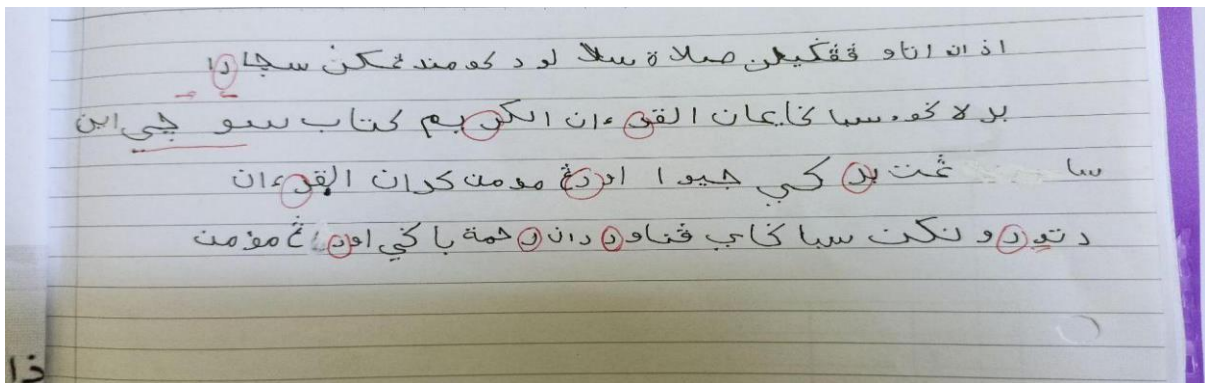 اذان اتاو ڤڠݢيلن صلاة سلالو دكومندڠكن سجارا
برلاکو. سباݢايمان القرءان الكريم كتاب سوچي اين
سا ڠت برکي جيوا اورڠ مومن کران القرءان
دتورونكن سباݢاي ڤناور دان رحمة باݢي اورڠ مؤمن
ذا